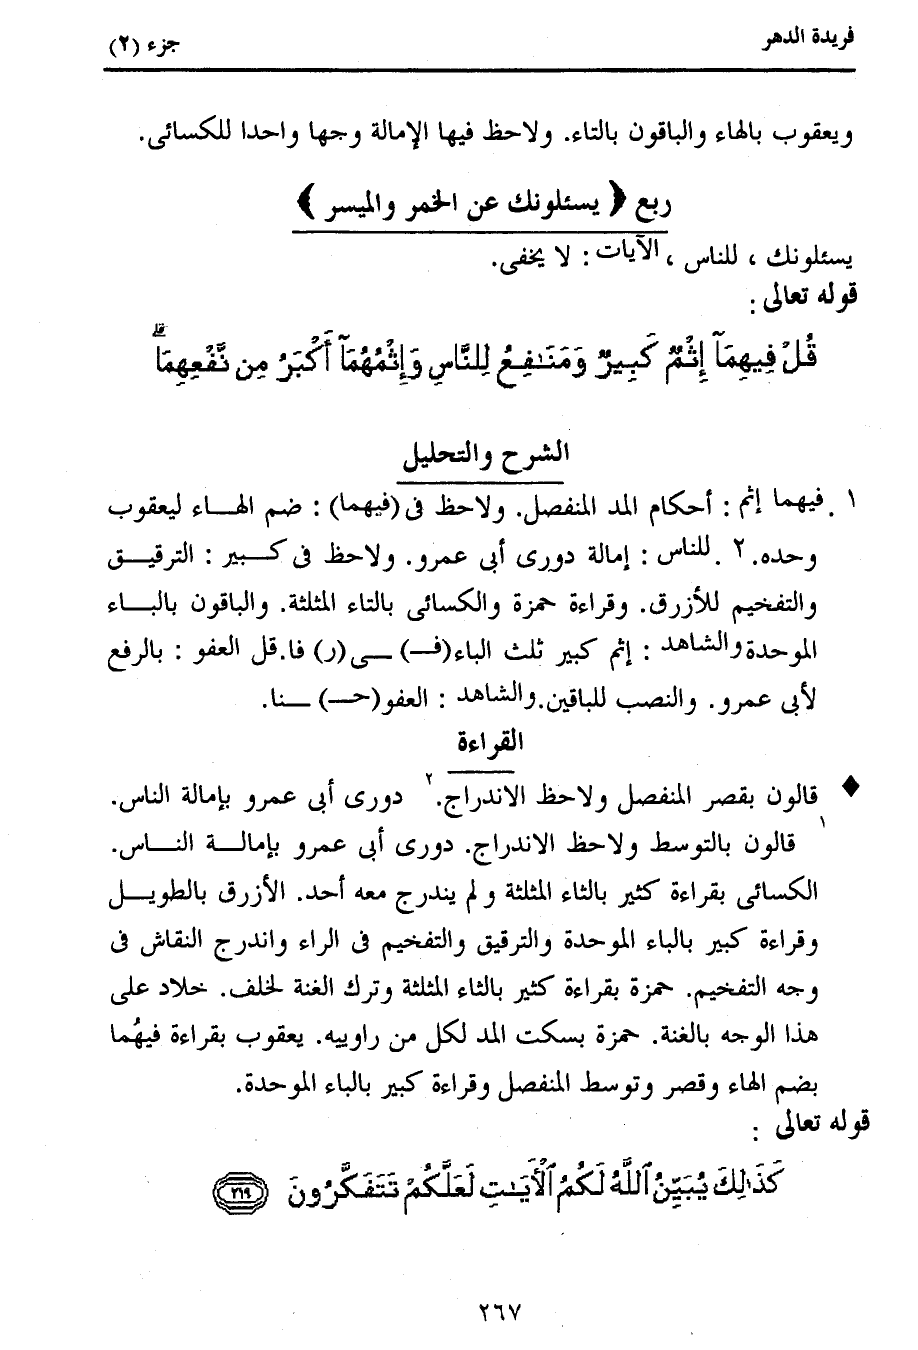 فريدة الدهر
جزء (٢)
ويعقوب بالهاء والباقون بالتاء. ولاحظ فيها الإمالة وجها واحدا للكسائى.
ربع ﴿ يسئلونك عن الخمر والميسر ﴾
يسئلونك ، للناس ، الآيات : لا يخفى.
قوله تعالى :
قُلْ فِيهِمَآ إِثْمٌ كَبِيرٌ وَمَنَـٰفِعُ لِلنَّاسِ وَإِثْمُهُمَآ أَكْبَرُ مِن نَّفْعِهِمَا ۗ
الشرح والتحليل
١ .فيهما إثم : أحكام المد المنفصل. ولاحظ فى (فيهما) : ضم الهـــاء ليعقوب
وحده. ٢ .للناس : إمالة دورى أبى عمرو. ولاحظ فى كـــبير : الترقيـــق
والتفخيم للأزرق. وقراءة حمزة والكسائى بالتاء المثلثة. والباقون بالبـــاء
الموحدة والشاهد : إثم كبير ثلث الباء(فــ) ـــى(ر) فا.قل العفو : بالرفع
لأبى عمرو. والنصب للباقين.والشاهد : العفو(حــ) ـــنا.
القراءة
◆ قالون بقصر المنفصل ولاحظ الاندراج.٢ دورى أبى عمرو بإمالة الناس.
١ قالون بالتوسط ولاحظ الاندراج. دورى أبى عمرو بإمالـــة النـــاس.
الكسائى بقراءة كثير بالثاء المثلثة و لم يندرج معه أحد. الأزرق بالطويـــل
وقراءة كبير بالباء الموحدة والترقيق والتفخيم فى الراء واندرج النقاش فى
وجه التفخيم. حمزة بقراءة كثير بالثاء المثلثة وترك الغنة لخلف. خلاد على
هذا الوجه بالغنة. حمزة بسكت المد لكل من راوييه. يعقوب بقراءة فيهُما
بضم الهاء وقصر وتوسط المنفصل وقراءة كبير بالباء الموحدة.
قوله تعالى :
كَذَٰلِكَ يُبَيِّنُ ٱللَّهُ لَكُمُ ٱلْأَيَـٰتِ لَعَلَّكُمْ تَتَفَكَّرُونَ ٢١٩
٢٦٧